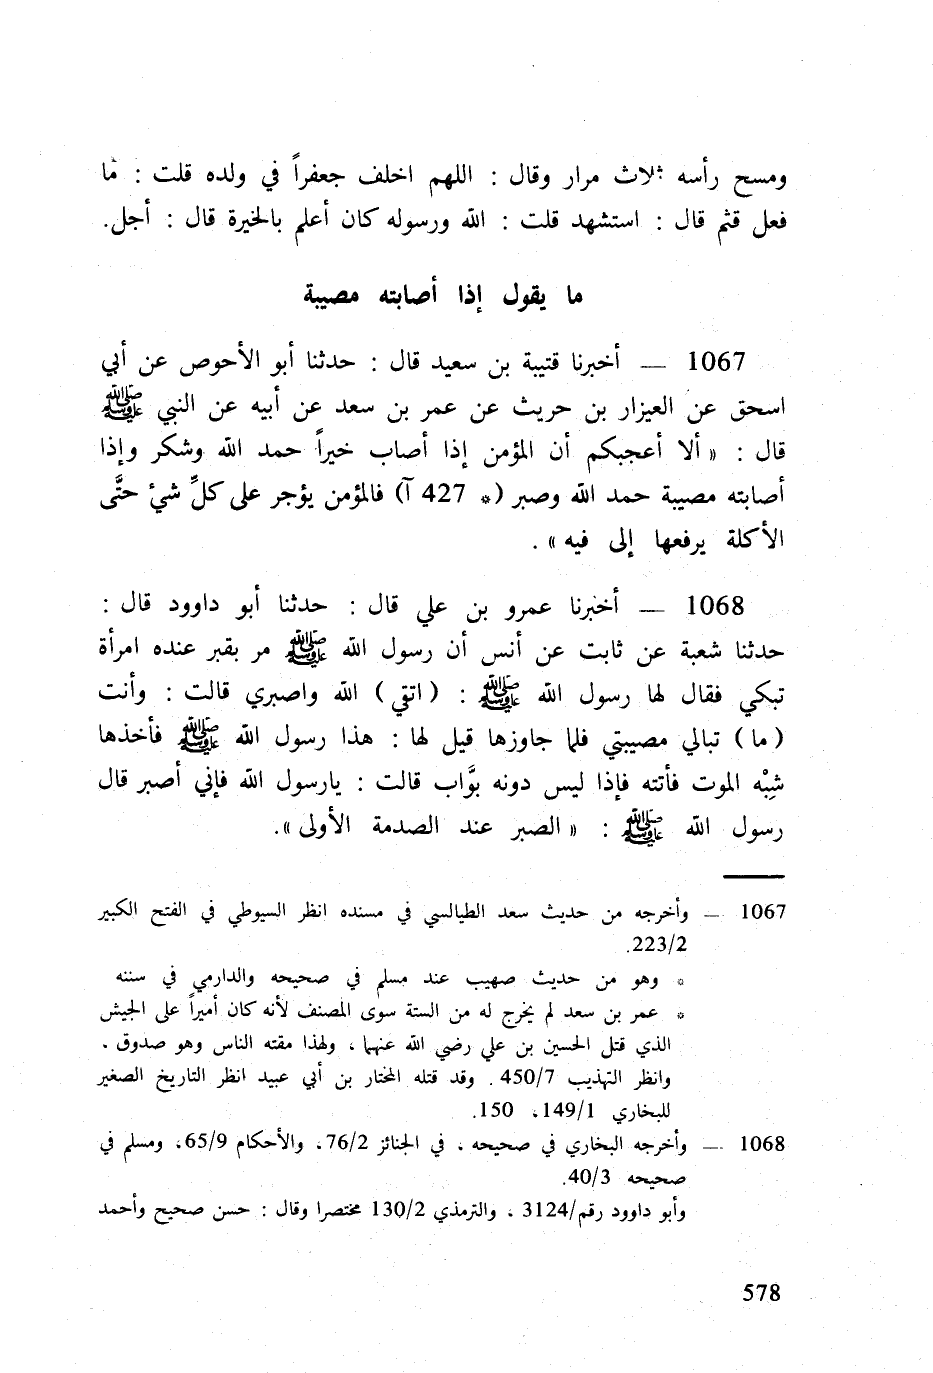 ومسح رأسه ثلاث مرار وقال : اللهم اخلف جعفراً في ولده قلت : مَا
فعل قثم قال : استشهد قلت : الله ورسوله كان أعلم بالخيرة قال : أجل.
ما يقول إذا أصابته مصيبة
1067 — أخبرنا قتيبة بن سعيد قال : حدثنا أبو الأحوص عن أبي
اسحق عن العيزار بن حريث عن عمر بن سعد عن أبيه عن النبي ﷺ
قال : « ألا أعجبكم أن المؤمن إذا أصاب خيراً حمد الله وشكر وإذا
أصابته مصيبة حمد الله وصبر (* 427 آ) فالمؤمن يؤجر على كلِّ شيْ حتَّى
الأكلة يرفعها إلى فيه » .
1068 — أخبرنا عمرو بن علي قال : حدثنا أبو داوود قال :
حدثنا شعبة عن ثابت عن أنس أن رسول الله ﷺ مر بقبر عنده امرأة
تبكي فقال لها رسول الله ﷺ : ( اتقي ) الله واصبري قالت : وأنت
( ما ) تبالي مصيبتي فلما جاوزها قيل لها : هذا رسول الله ﷺ فأخذها
شِبْه الموت فأتته فإذا ليس دونه بوَّاب قالت : يارسول الله فإني أصبر قال
رسول الله ﷺ : « الصبر عند الصدمة الأولى ».
1067 — وأخرجه من حديث سعد الطيالسي في مسنده انظر السيوطي في الفتح الكبير
223/2.
* وهو من حديث صهيب عند مسلم في صحيحه والدارمي في سننه
* عمر بن سعد لم يخرج له من الستة سوى المصنف لأنه كان أميراً على الجيش
الذي قتل الحسين بن علي رضي الله عنهما ، ولهذا مقته الناس وهو صدوق .
وانظر التهذيب 450/7 . وقد قتله المختار بن أبي عبيد انظر التاريخ الصغير
للبخاري 149/1 ، 150.
1068 — وأخرجه البخاري في صحيحه ، في الجنائز 76/2 ، والأحكام 65/9 ، ومسلم في
صحيحه 40/3.
وأبو داوود رقم/3124 ، والترمذي 130/2 مختصرا وقال : حسن صحيح وأحمد
578